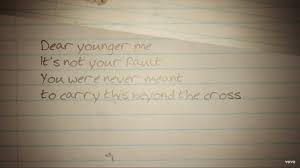 Dear younger me
It's not your fault
You were never meant
to carry this beyond the cross
vevo